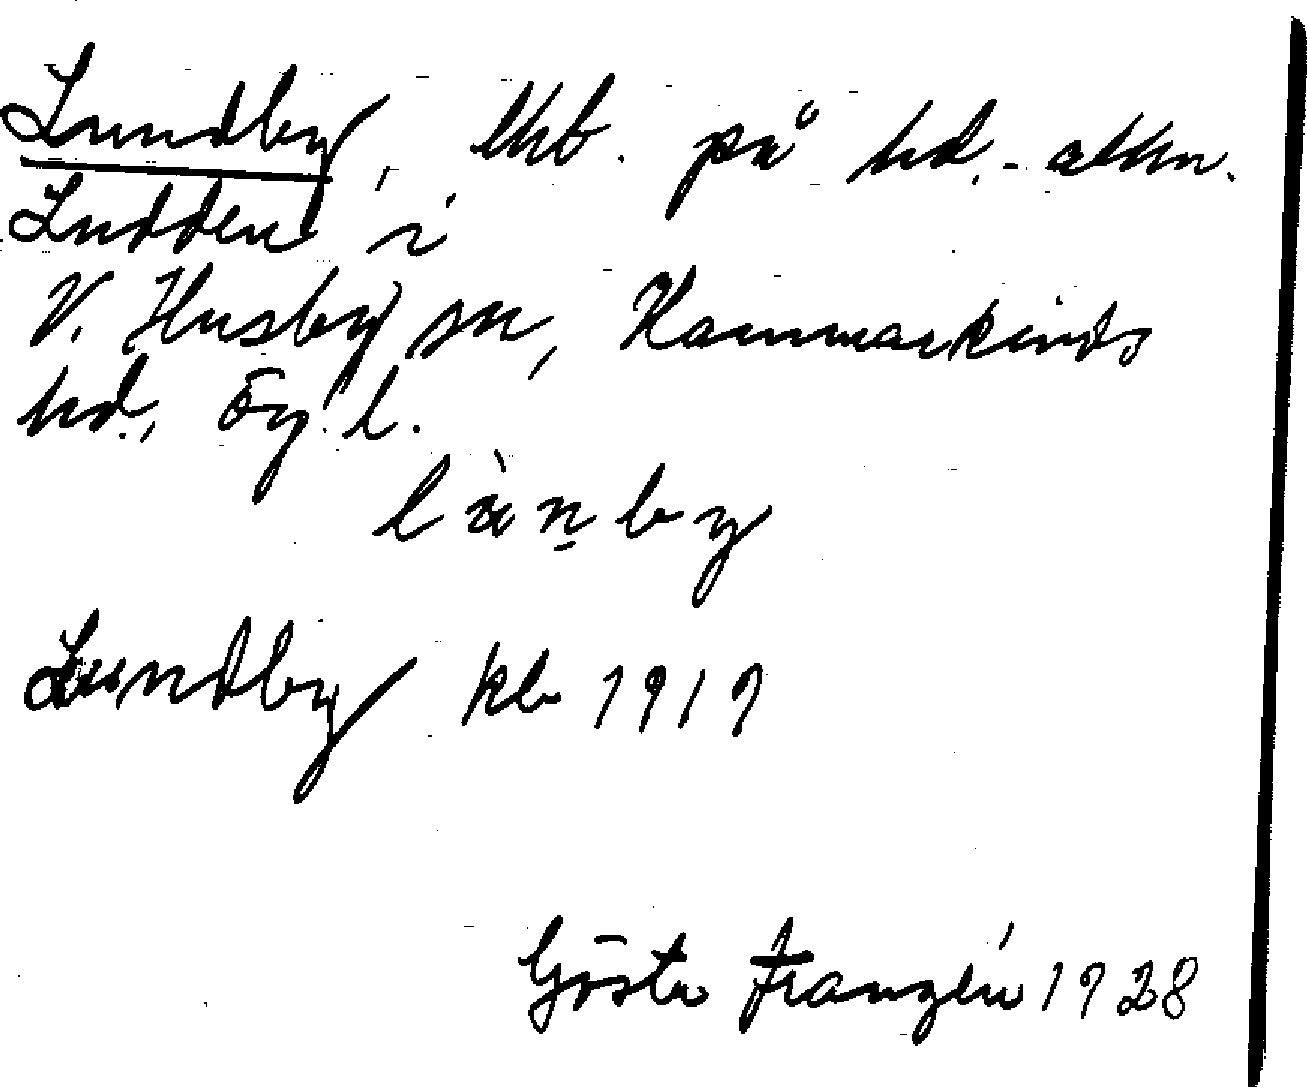 Lundby, lht. på hd.-allm.
Ludden i
V. Husby sn, Hammarkinds
hd., Ög. l.
län̠by
Lundby kb 1919
Gösta Franzén 1928